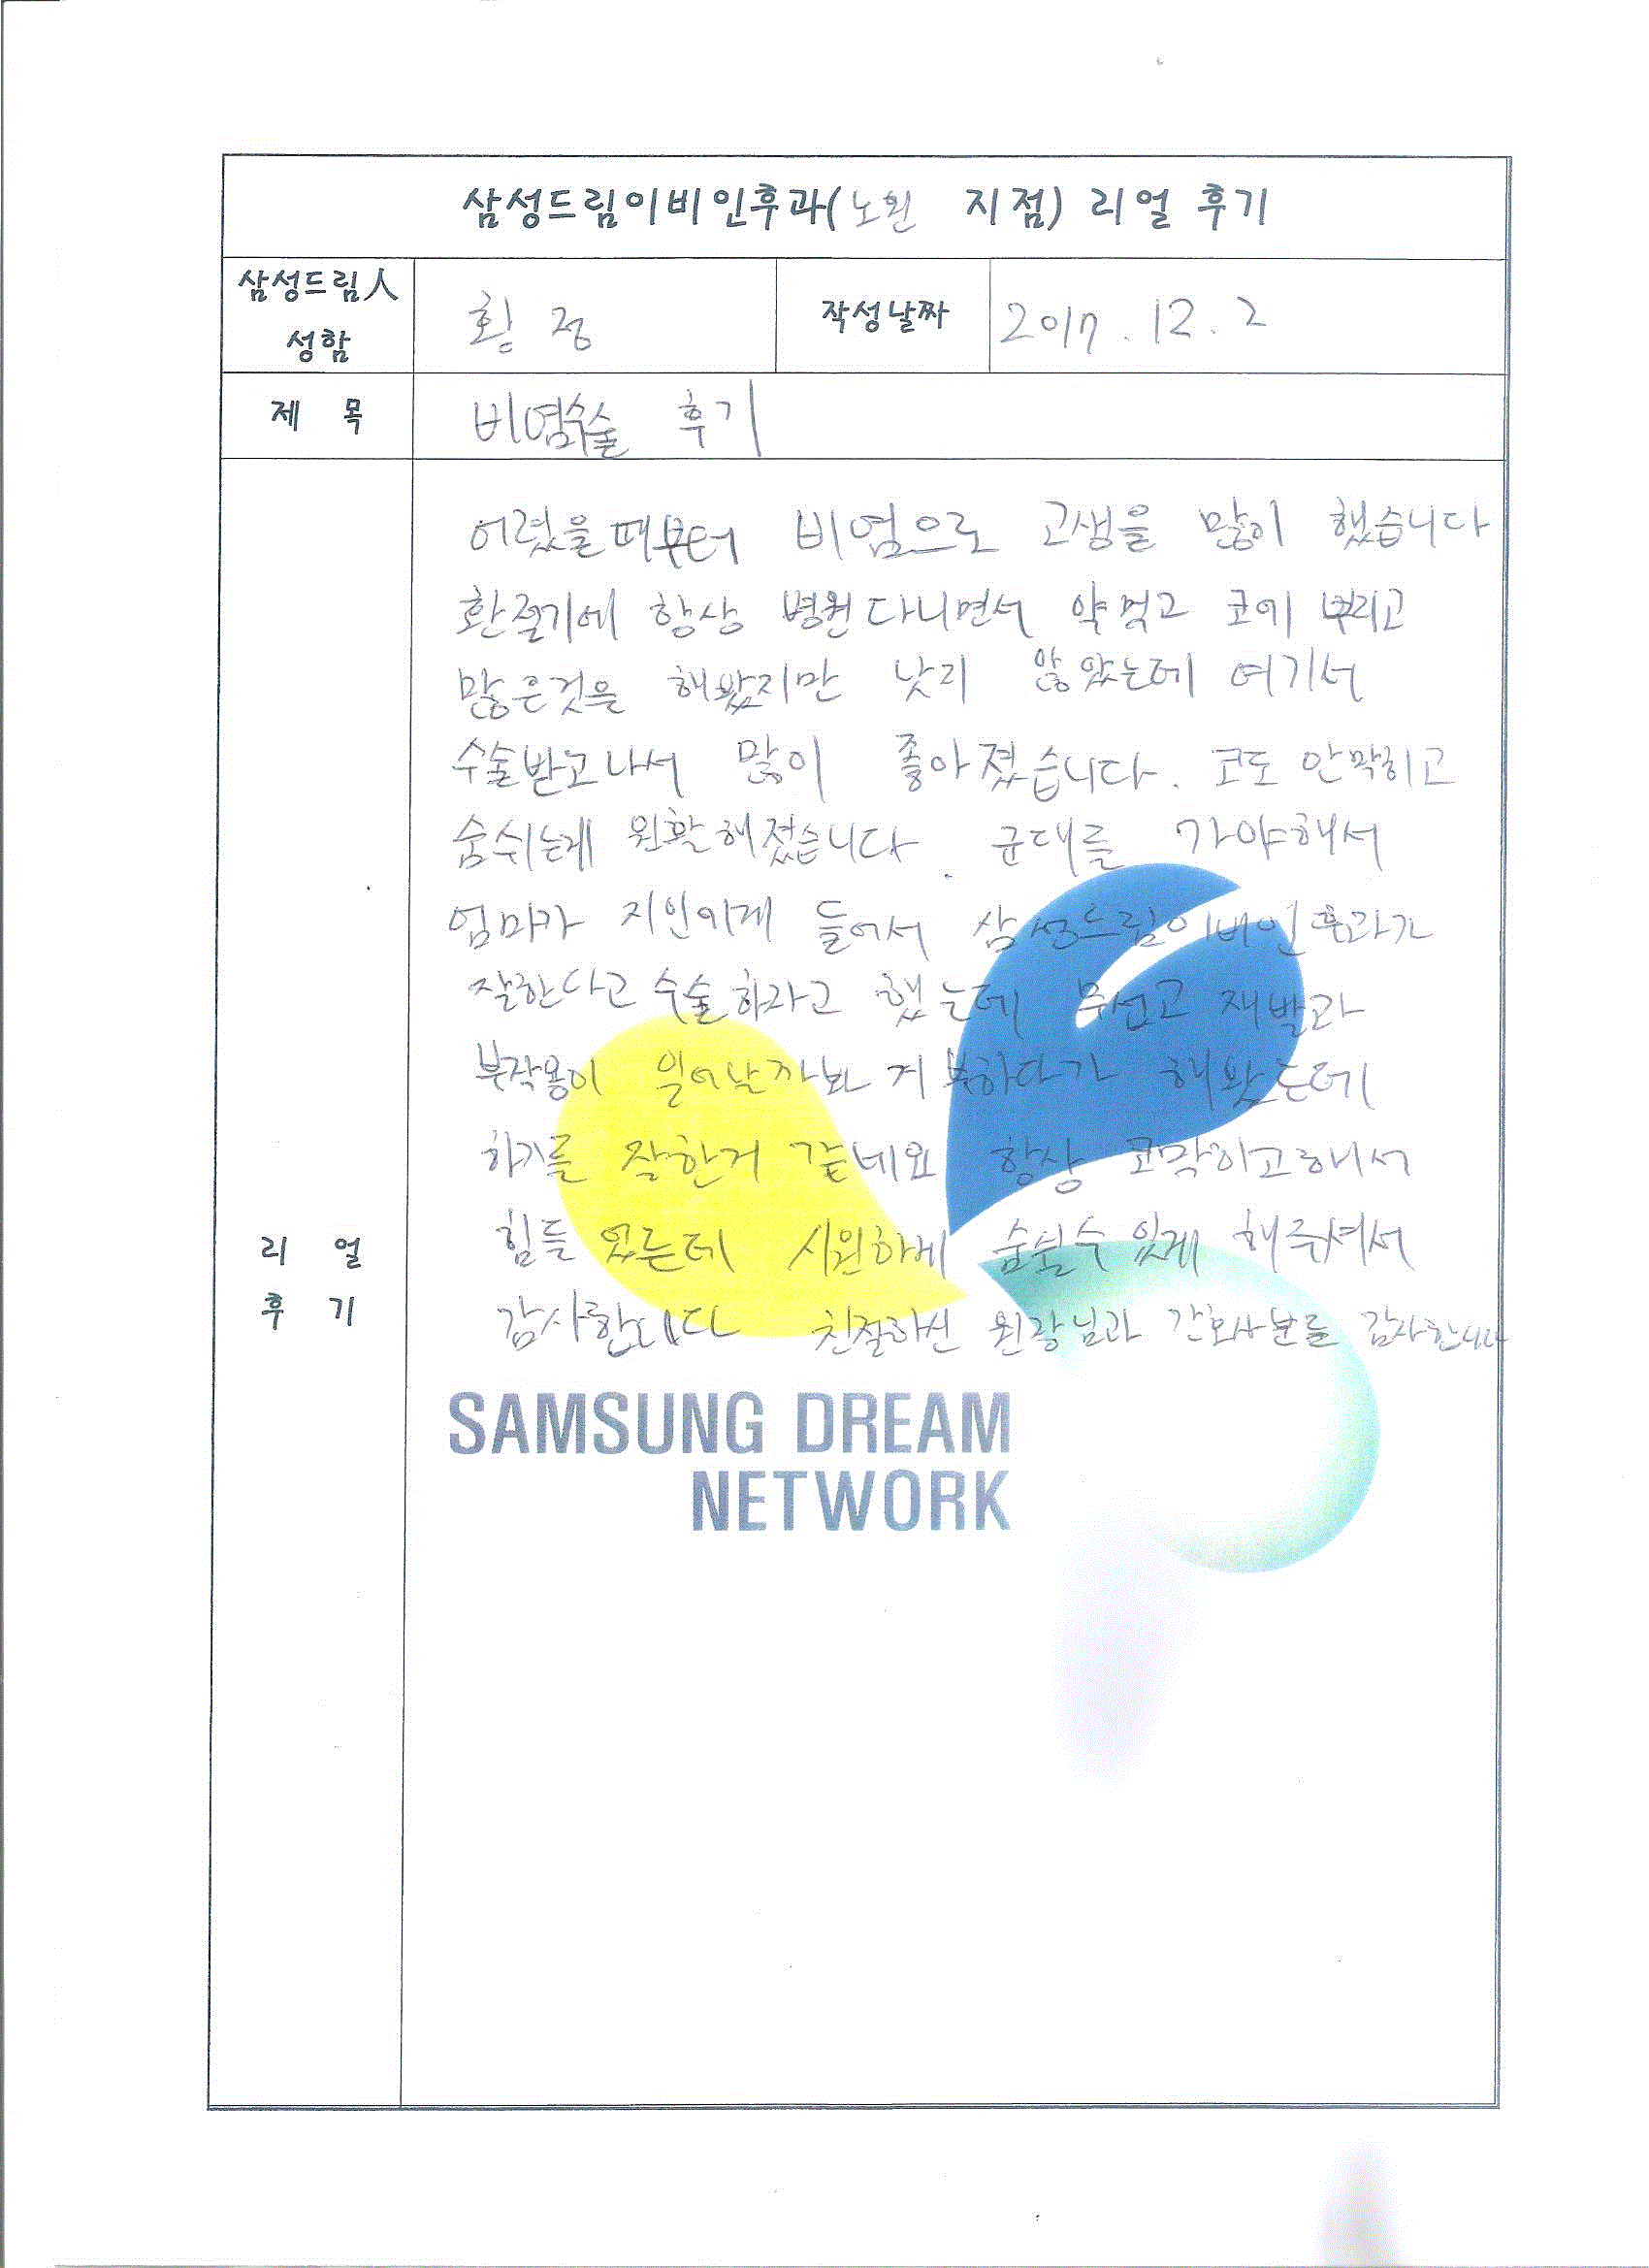 삼성드림이비인후과(노원 지점) 리얼 후기
삼성드림人 성함
황 정
작성날짜
2017. 12. 2
제 목
비염수술 후기
어렸을때부터 비염으로 고생을 많이 했습니다
환절기에 항상 병원다니면서 약먹고 코에 뿌리고
많은것을 해봤지만 낫지 않았는데 여기서
수술받고나서 많이 좋아졌습니다. 코도 안막히고
숨쉬는게 원활해졌습니다. 군대를 가야해서
엄마가 지인에게 들어서 삼성드림이비인후과가
잘한다고 수술하라고 했는데 무섭고 재발과
부작용이 일어날까봐 거부하다가 해봤는데
하기를 잘한거 같네요 항상 코막히고해서
힘들었는데 시원하게 숨쉴수 있게 해주셔서
감사합니다 친절하신 원장님과 간호사분들 감사합니다
리 얼
후 기
SAMSUNG DREAM
NETWORK